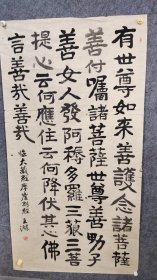 有世尊如来善護念諸菩薩
善付囑諸菩薩世尊善男子
善女人發阿耨多羅三藐三菩
提心云何應住云何降伏其心佛
言善哉善哉